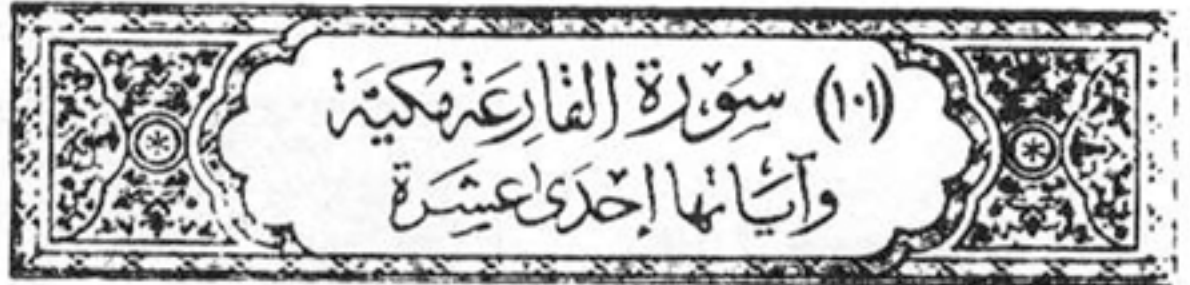 (١٠١) سُوۡرَة القَارِعَة مَكيَّة
وَآيَاتها إحۡدَىٰ عَشرَة